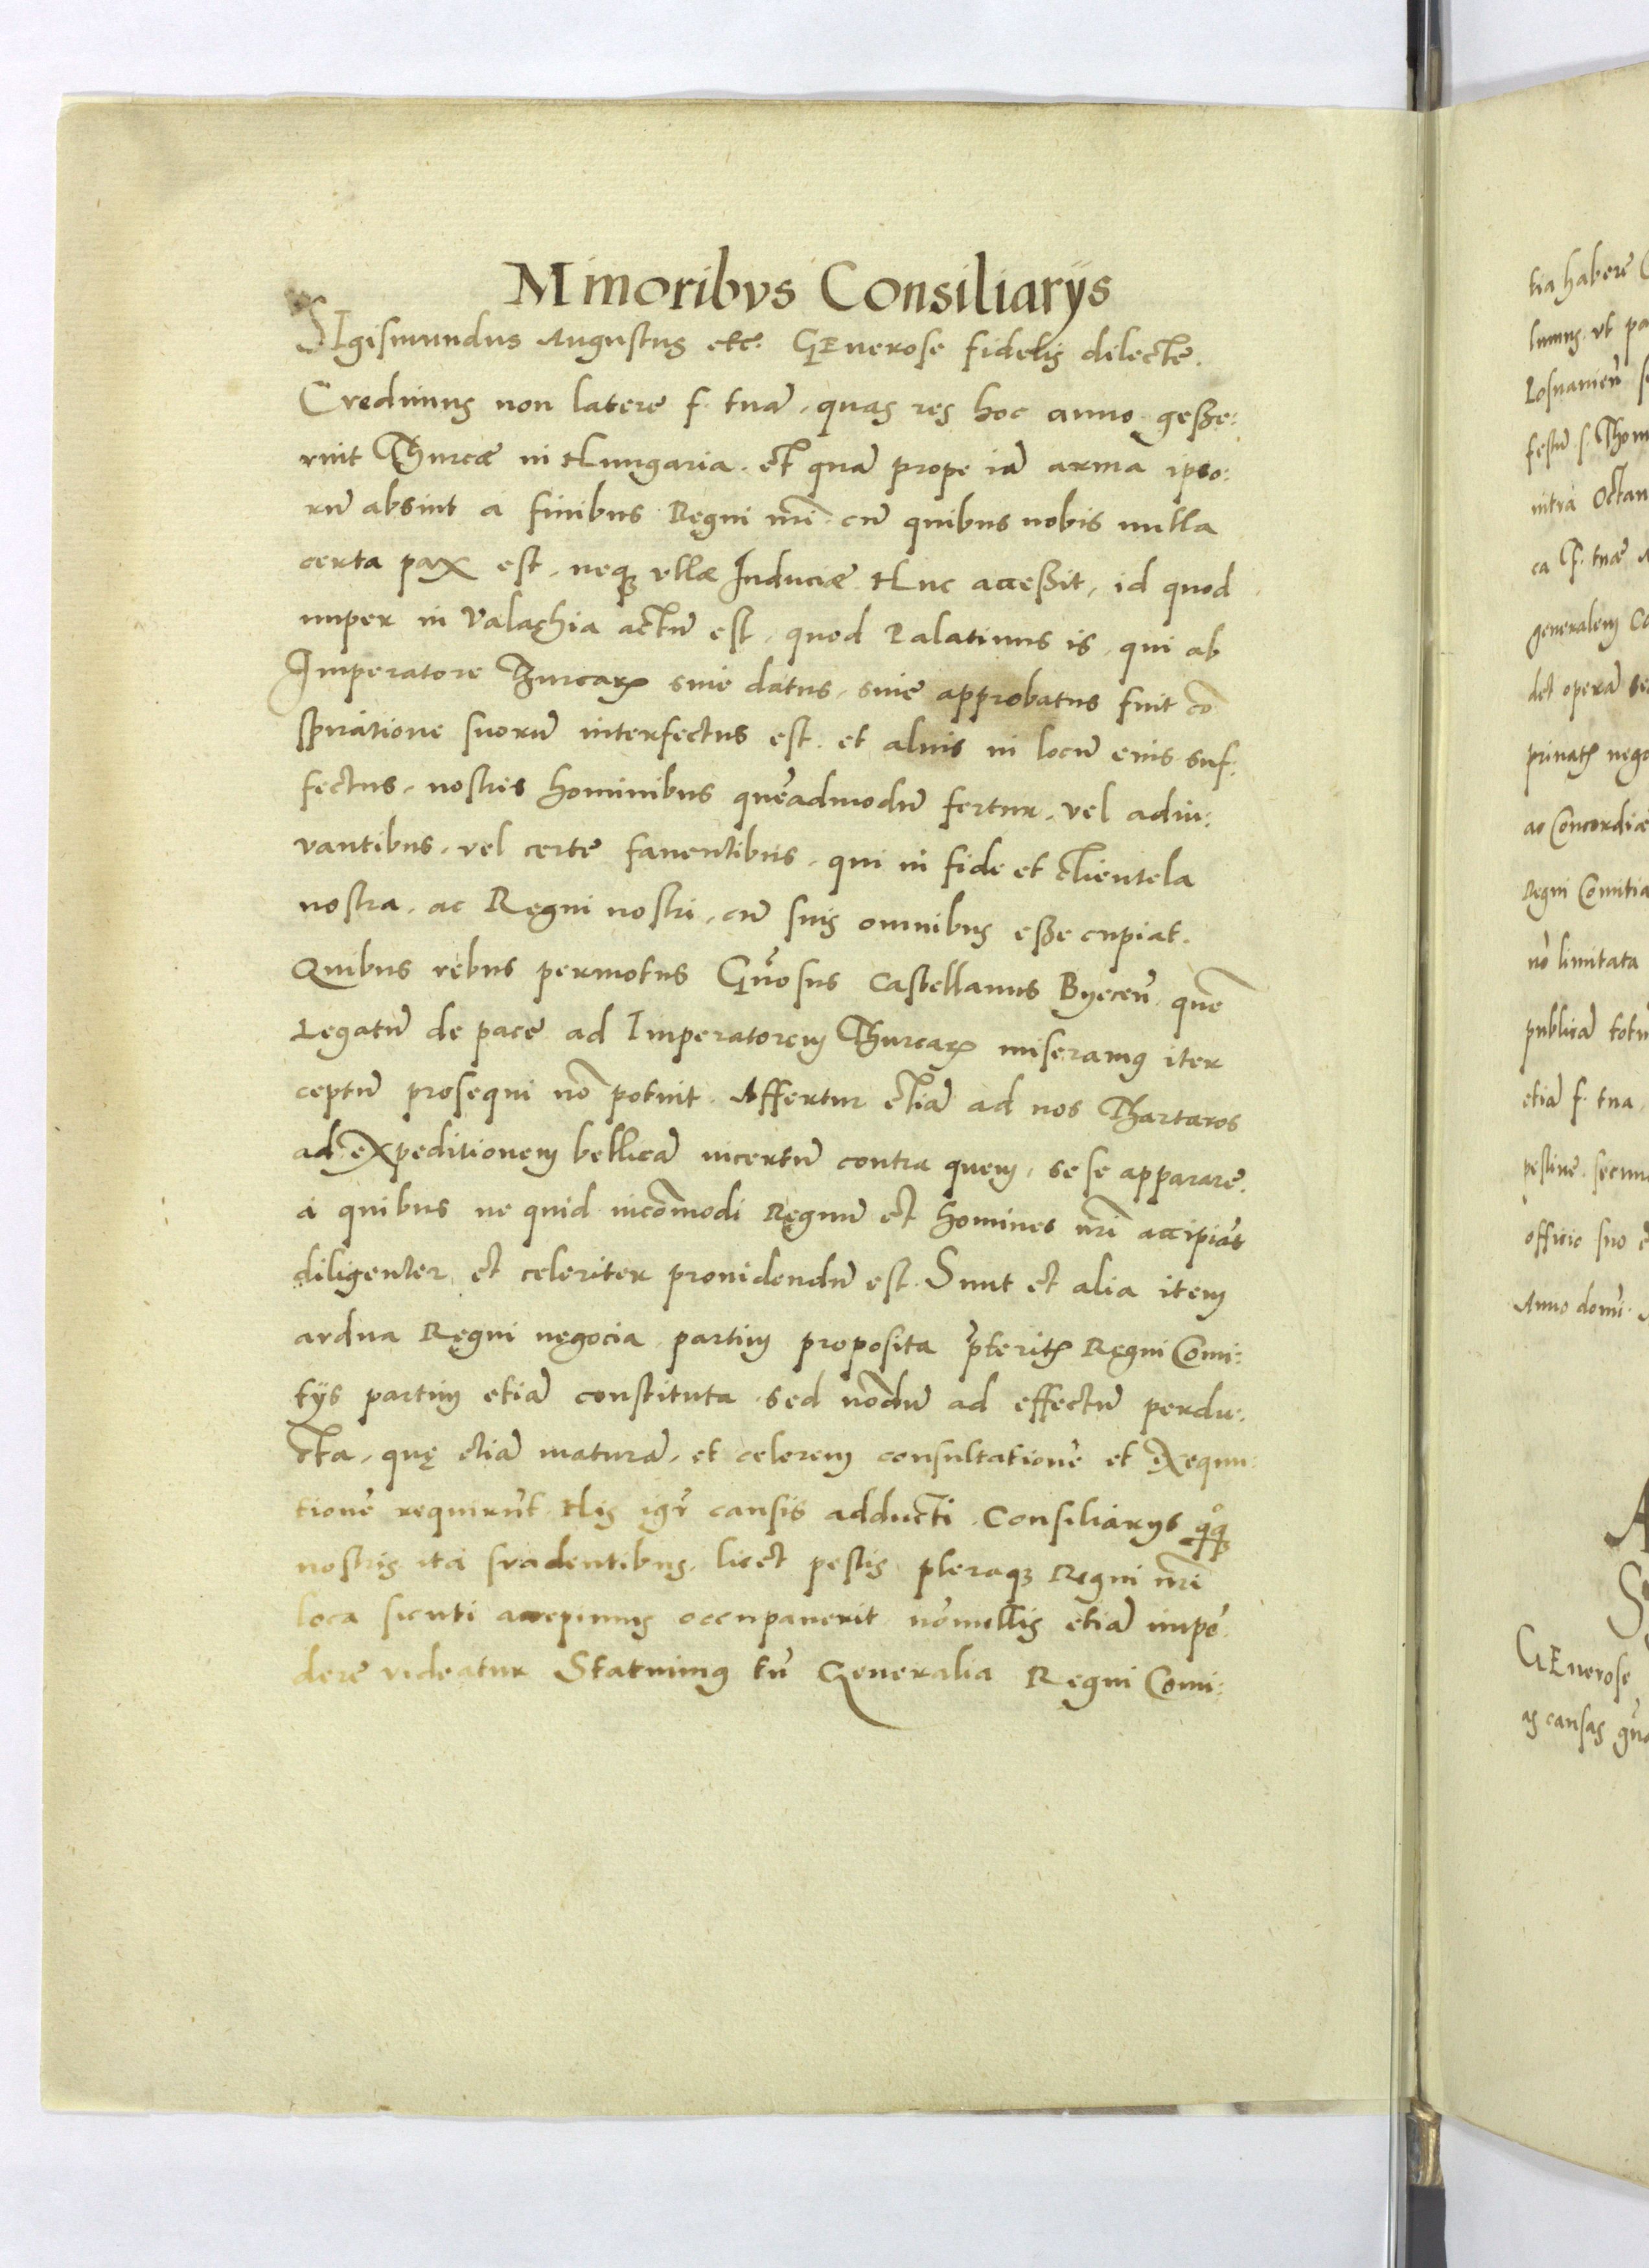 Minoribvs Consiliarijs
SIgismundus Augustus etc. GEnerose fidelis dilecte.
Credimus non latere f. tuā, quas res hoc anno geße:
rint Thurcæ in Hungaria. et quā prope iā arma ipso:
rū absint a finibus Regni nr̄i cū quibus nobis nulla
certa pax est, neqꝫ vllæ Induciæ. Huc acceßit, id quod
nuper in Valachia actū est, quod Palatinus is, qui ab
Imperatore Thurcarꝝ siue datus, siue approbatus fuit cō
spiratione suorū interfectus est. et alius in locū eius suf:
fectus, nostris hominibus quēadmodū fertur, vel adiu:
vantibus, vel certe fauentibus, qui in fide et clientela
nostra, ac Regni nostri, cū suis omnibus eße cupiat.
Quibus rebus permotus Gn̄osus Castellanus Byeceñ. quē
Legatū de pace ad Imperatorem Thurcarꝝ miseramus iter
ceptum prosequi nō potuit. Affertur etiā ad nos Thartaros
ad expeditionem bellicā incertū contra quem, se se apparare.
a quibus ne quid incōmodi Regnū et homines nr̄i accipiāt
diligenter, et celeriter prouidendū est. Sunt et alia item
ardua Regni negocia partim proposita p̄teritꝭ Regni Comi:
tijs partim etiā constituta sed nōdū ad effectū perdu:
cta, quę etiā maturā, et celerem consultationē et exequu:
tionē requirūt. His igr̄ causis adducti. Consiliarijs qͦqꝫ
nostris ita suadentibus, licet pestis pleraqꝫ Regni nr̄i
loca sicuti accepimus occupauerit nōnullis etiā impē:
dere videatur Statuimus tn̄ Generalia Regni Comi:
tia habere
lumus, vt pa
Posnanień
festū s. Thom
intra Octau
ca f. tuæ
generalem Co
det operā
priuatꝭ nego
ac Concordiæ
Regni Comitia
nō limitata
publicā totū
etiā f. tua,
pestiuē
officio suo
Anno domī.
GEnerose
as causas